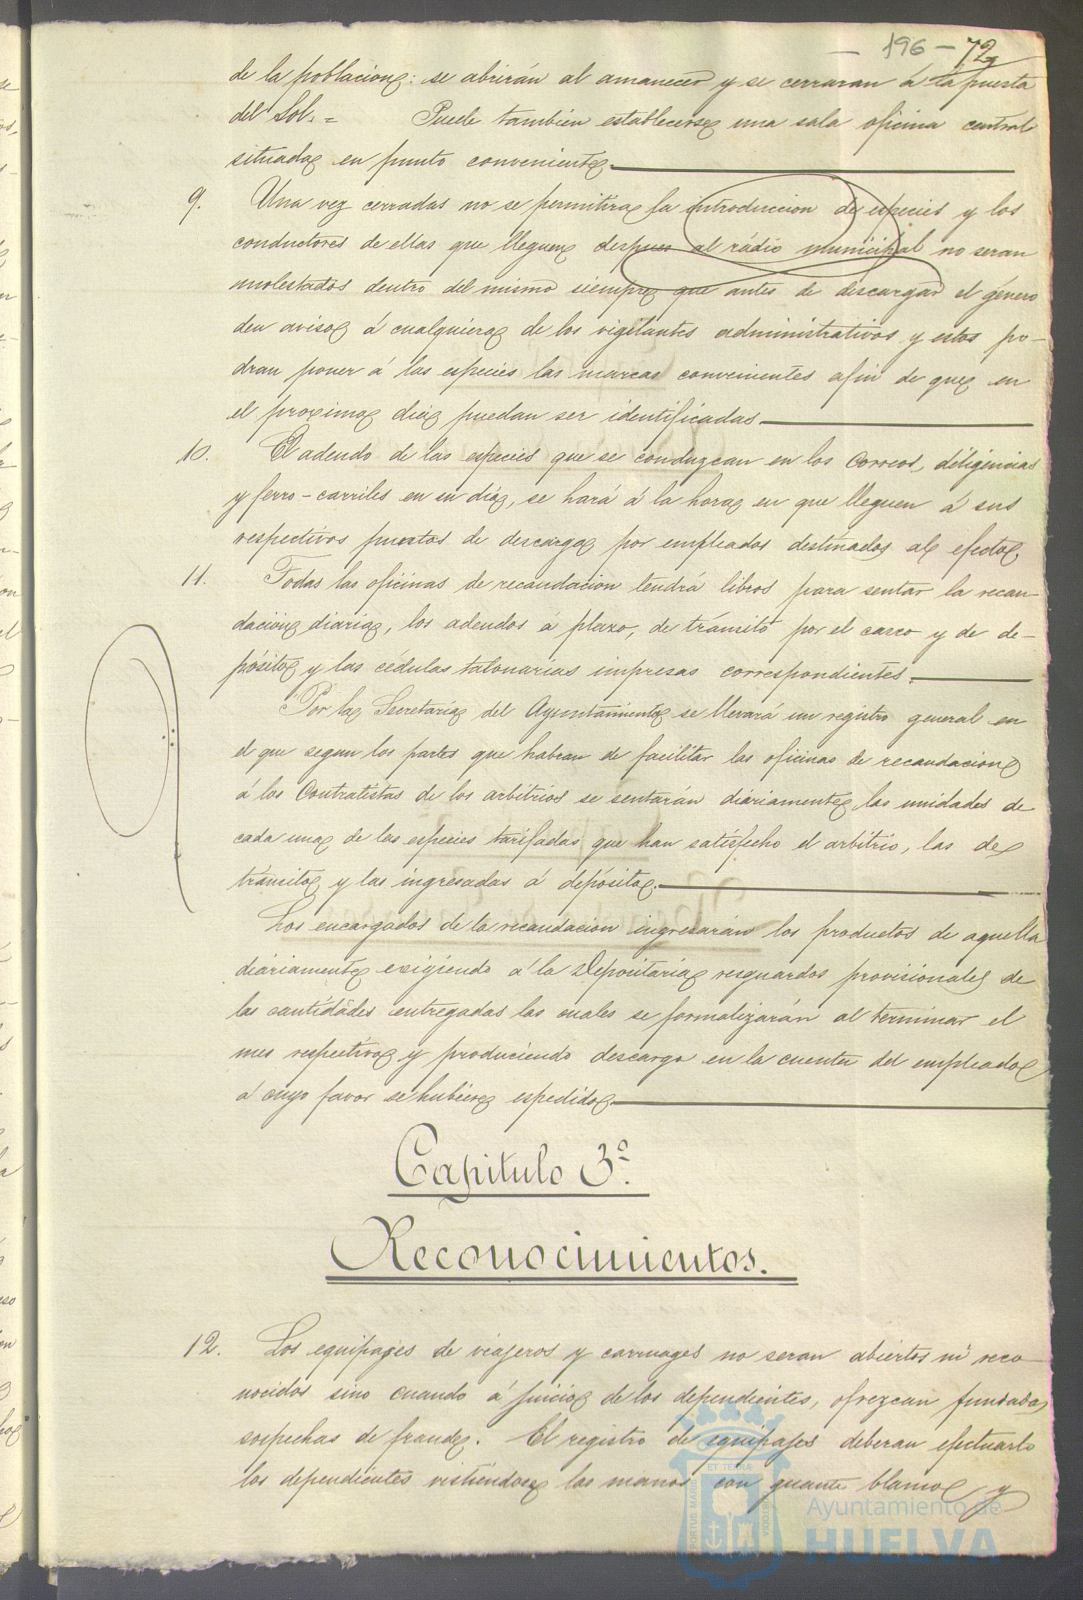 - 196 - 72
de la poblacion: se abrirán al amanecer y se cerraran á la puesta
del Sol. = Puede tambien establecerse una sala oficina central
situada en punto conveniente.
9. Una vez cerradas no se permitira la introduccion de especies y los
conductores de ellas que lleguen despues al rádio municipal no seran
molestados dentro del mismo siempre que antes de descargar el género
den aviso á cualquiera de los vigilantes administrativos y estos po-
dran poner á las especies las marcas convenientes afin de que en
el proximo dia puedan ser identificadas.
10. El adeudo de las especies que se conduzcan en los Correos, diligencias
y ferro-carriles en su dia, se hará á la hora en que lleguen á sus
respectivos puestos de descarga por empleados destinados al efecto.
11. Todas las oficinas de recaudacion tendrá libros para sentar la recau-
dacion diaria, los adeudos á plazo, de tránsito por el casco y de de-
pósito y las cédulas talonarias impresas correspondientes.
Por la Secretaria del Ayuntamiento se llevará un registro general en
el que segun los partes que habran de facilitar las oficinas de recaudacion
á los Contratistas de los arbitrios se sentarán diáriamente las unidades de
cada una de las especies tarifadas que han satisfecho el arbitrio, las de
tránsito y las ingresadas á depósito.
Los encargados de la recaudacion ingresarán los productos de aquella
diáriamente exigiendo á la Depositaria resguardos provisionales de
las cantidades entregadas las cuales se formalizarán al terminar el
mes respectivo y produciendo descargo en la cuenta del empleado
á cuyo favor se hubiere espedido.
Capitulo 3º.
Reconocimientos.
12. Los equipages de viajeros y carruages no seran abiertos ni reco-
nocidos sino cuando á juicio de los dependientes, ofrezcan fundadas
sospechas de fraude. El registro de equipajes deberan efectuarlo
los dependientes vistiéndose las manos con guante blanco y
Ayuntamiento de
HUELVA